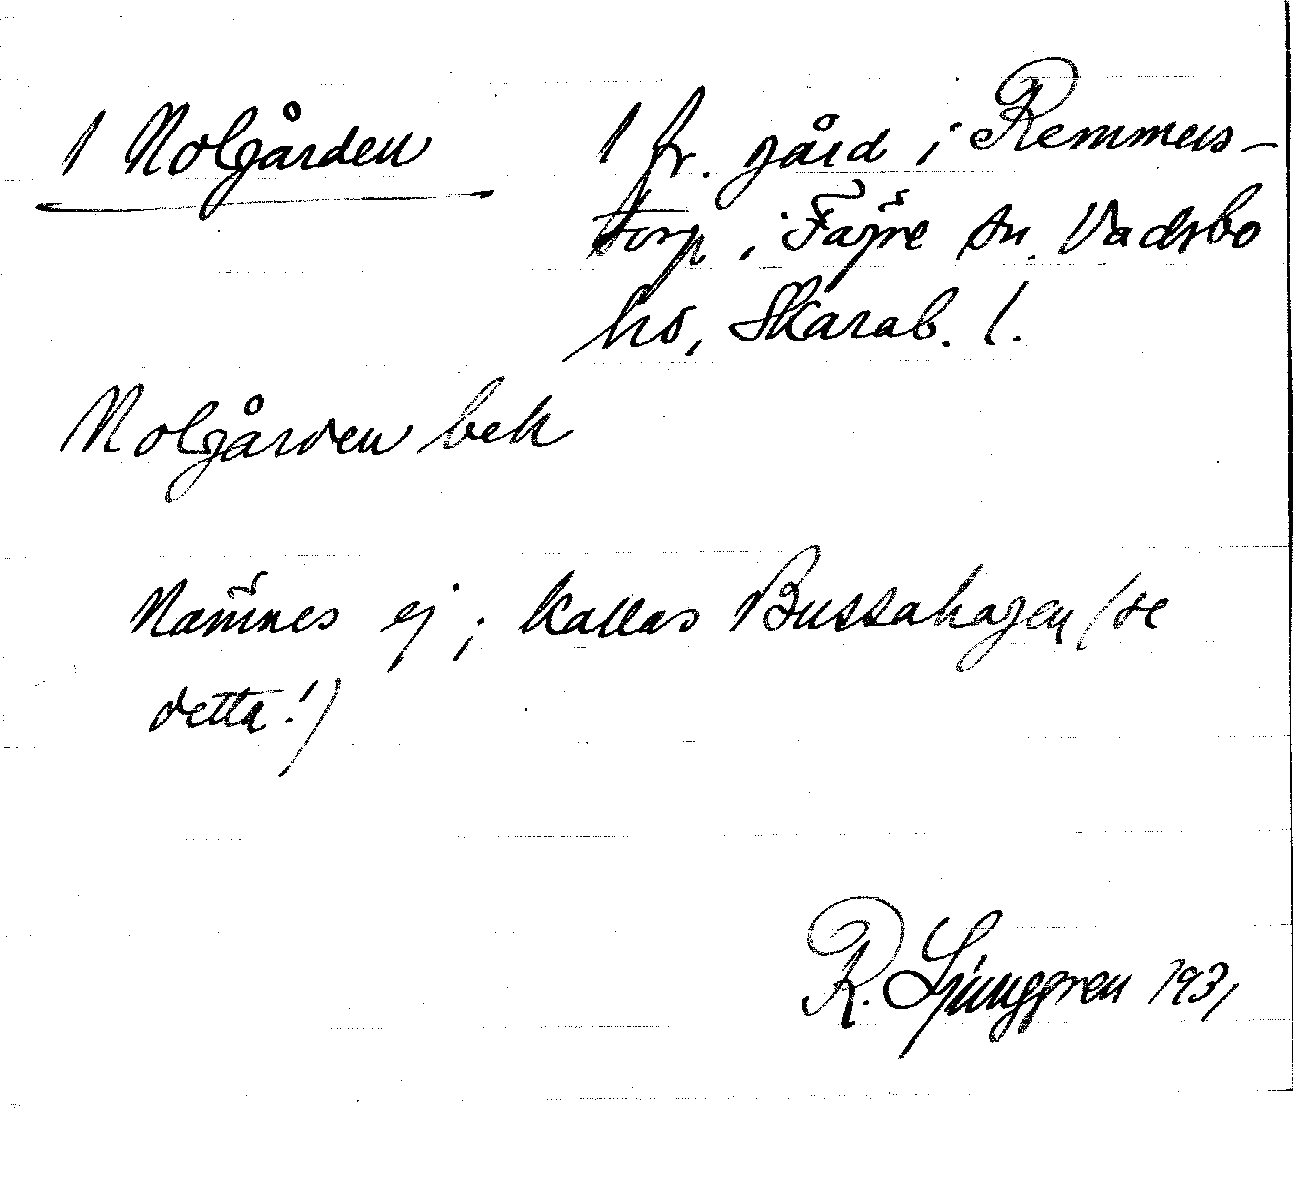 1 Nolgården 1 fr. gård i Remmers-
torp i Fägre sn. Vadsbo
hd, Skarab. l.
Nolgården bek
Nämnes ej; kallas Bussahagen (se
detta!)
R. Ljunggren 1931